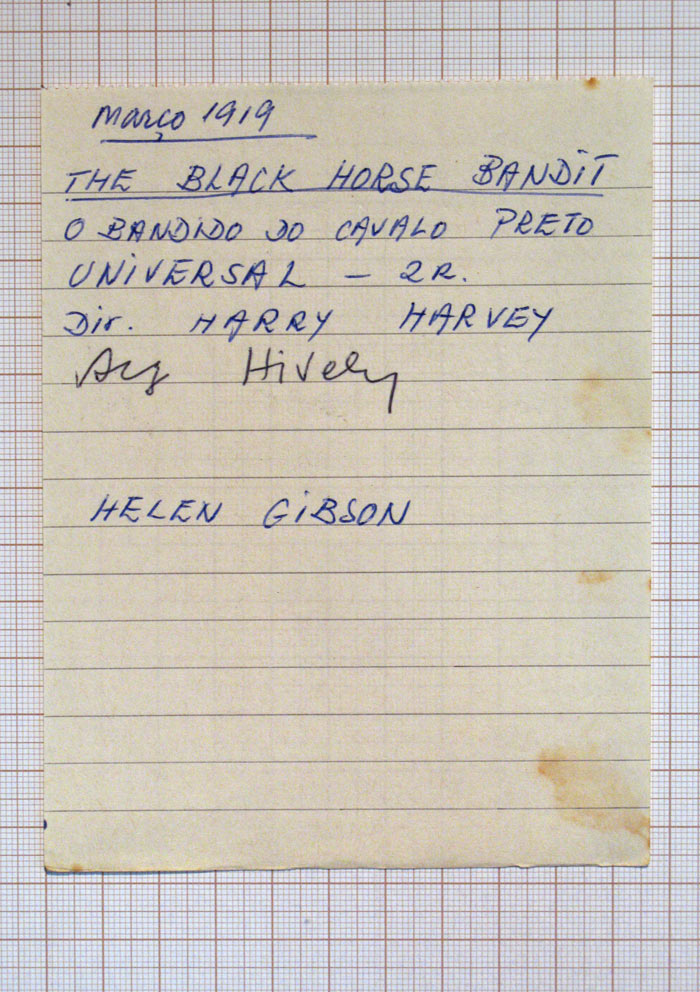 Março 1919
THE BLACK HORSE BANDIT
O BANDIDO DO CAVALO PRETO
UNIVERSAL – 2R.
Dir. HARRY HARVEY
Arg Hively
HELEN GIBSON